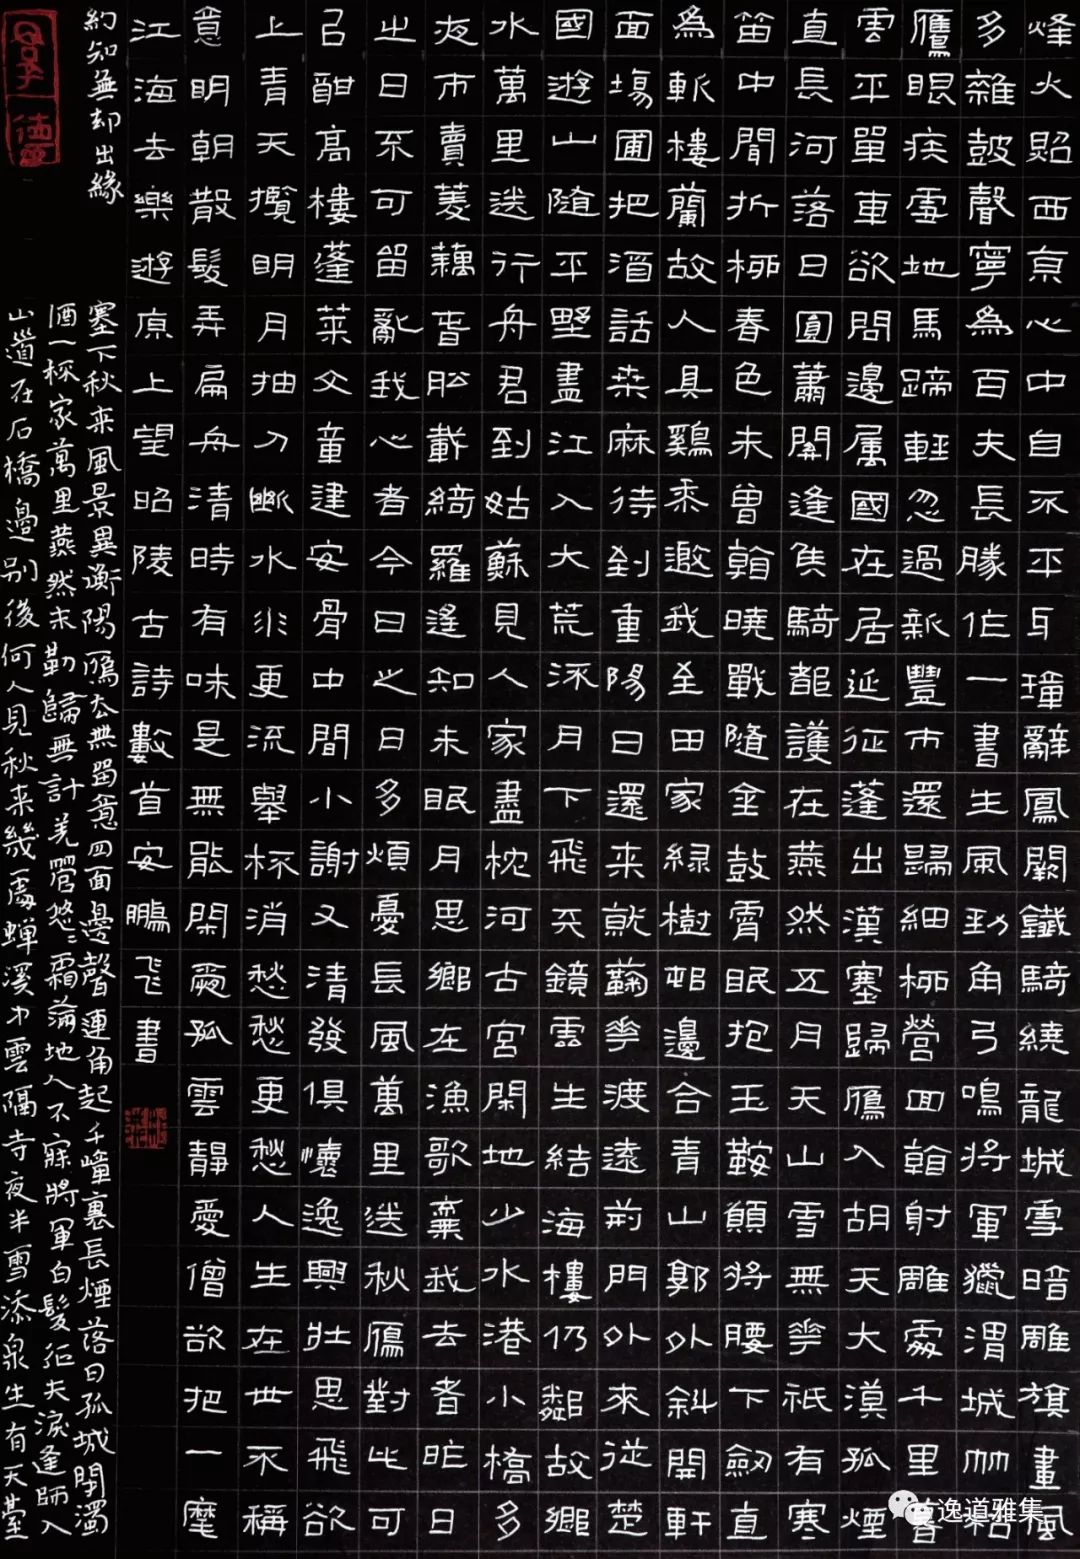 烽火照西京心中自不平牙璋辭鳳闕鐵騎繞龍城雪暗雕旗畫風
多雜鼓聲寧為百夫長勝作一書生風勁角弓鳴將軍獵渭城艸枯
鷹眼疾雪地馬蹄輕忽過新豐市還歸細柳營回翰射雕處千里暮
雲平單車欲問邊屬國在居延征蓬出漢塞歸雁入胡天大漠孤煙
直長河落日圓蕭關逢焦騎都護在燕然五月天山雪無華祇有寒
笛中聞折柳春色未曾翰曉戰隨金鼓霄眠抱玉鞍願將腰下劔直
為斬樓蘭故人具鷄黍邀我至田家綠樹邨邊合青山郭外斜開軒
面場圃把酒話桑麻待到重陽日還来就菊華渡遠荊門外來從楚
國遊山隨平野盡江入大荒流月下飛天鏡雲生結海樓仍鄰故鄉
水萬里送行舟君到姑蘇見人家盡枕河古宮閑地少水港小橋多
夜市賣菱藕春船載綺羅遙知未眠月思鄉在漁歌棄我去者昨日
之日不可留亂我心者今日之日多煩憂長風萬里送秋雁對此可
以酣高樓蓬萊文章建安骨中間小謝又清發俱懷逸興壯思飛欲
上青天攬明月抽刀斷水水更流舉杯消愁愁更愁人生在世不稱
意明朝散髮弄扁舟清時有味是無能閑愛孤雲靜愛僧欲把一麾
江海去樂遊原上望昭陵古詩數首安鵬飛書
塞下秋来風景異衡陽雁去無留意四面邊聲連角起千嶂裏長煙落日孤城閉濁
酒一杯家萬里燕然未勒歸無計羌管悠悠霜滿地人不寐將軍白髮征夫淚逢師入
山道在石橋邊別後何人見秋来幾處蟬溪中雲隔寺夜半雪添泉生有天臺
約知無却出緣
逸道雅集